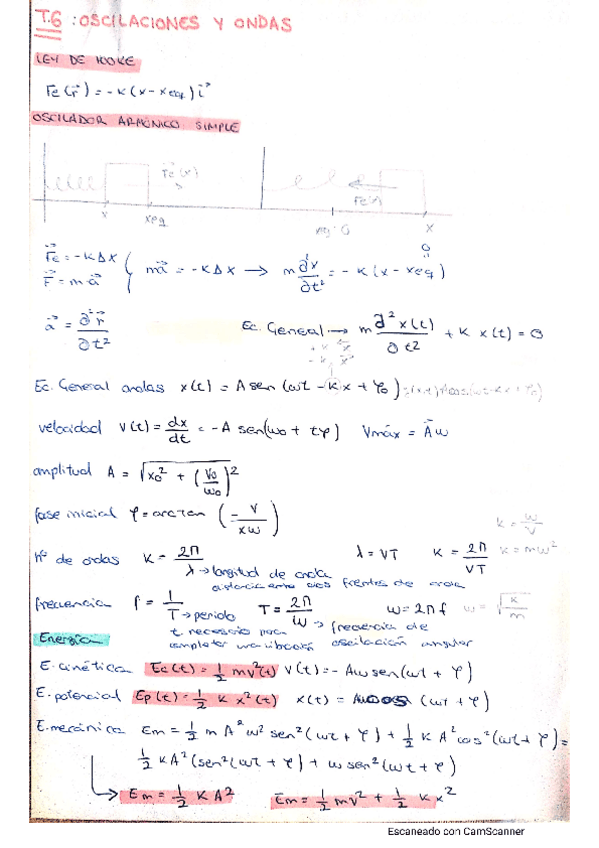 T.6: OSCILACIONES Y ONDAS
LEY DE HOOKE
Fe(r⃗) = -K(x-xeq) i⃗
OSCILADOR ARMÓNICO SIMPLE
Fe(x)
Fe(x)
x xeq x
0
Fe = -KΔx
F = m·a⃗
ma⃗ = -KΔx → m ∂²x/∂t² = -K(x-xeq)
a⃗ = ∂²r⃗/∂t²
Ec. General → m ∂²x(t)/∂t² + K x(t) = 0
Ec. General ondas x(t) = A sen(ωt - Kx + φo)
velocidad v(t) = dx/dt = -A sen(ωo + tφ) Vmáx = Aω
amplitud A = √(xo² + (Vo/ωo)²)
fase inicial φ = arctan (-V/xω)
K = ω/V
nº de ondas K = 2π/λ → longitud de onda λ = VT K = 2π/VT K = mω²
distancia entre dos frentes de onda
frecuencia f = 1/T → periodo T = 2π/ω → frecuencia de ω = 2πf ω = √(K/m)
t. necesario para completar una vibración
oscilación angular
Energía
E. cinética Ec(t) = 1/2 mv²(t) v(t) = -Aω sen(ωt + φ)
E. potencial Ep(t) = 1/2 K x²(t) x(t) = A cos (ωt + φ)
E. mecánica Em = 1/2 m A² ω² sen²(ωt + φ) + 1/2 K A² cos²(ωt + φ) =
1/2 KA² (sen²(ωt + φ) + ω sen²(ωt + φ)
→ Em = 1/2 KA² Em = 1/2 mv² + 1/2 Kx²
Escaneado con CamScanner